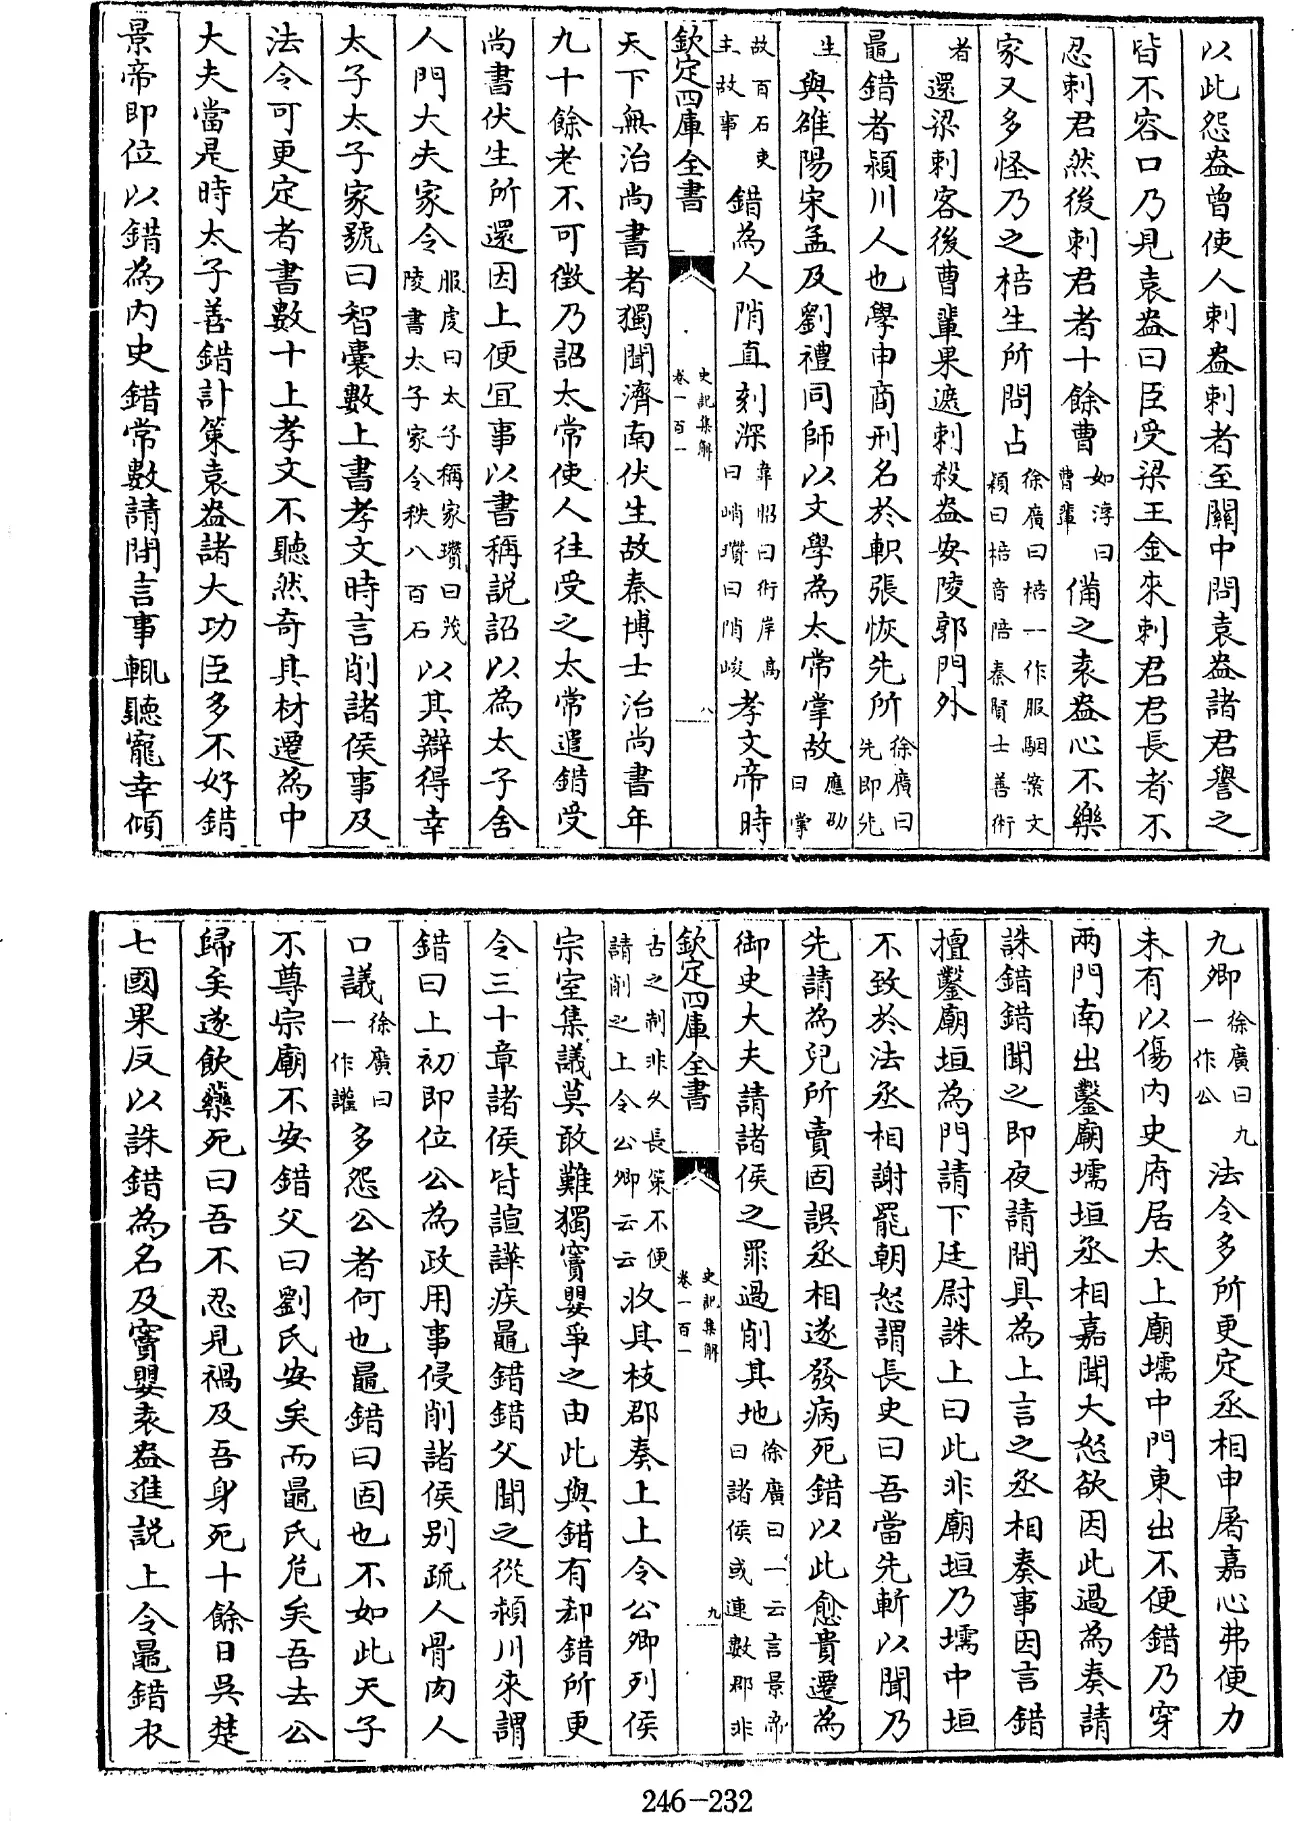 以此怨盎曾使人刺盎刺者至關中問袁盎諸君譽之
皆不容口乃見袁盎曰臣受梁王金來刺君君長者不
忍刺君然後刺君者十餘曹如淳曰曹輩備之袁盎心不樂
家又多怪乃之棓生所問占徐廣曰棓一作服駰案文穎曰棓音陪秦賢士善術
者還梁刺客後曹輩果遮刺殺盎安陵郭門外
鼂錯者潁川人也學申商刑名於軹張恢先所徐廣曰先即先
生與雒陽宋孟及劉禮同師以文學為太常掌故應劭曰掌
故百石吏主故事錯為人陗直刻深韋昭曰術岸高曰峭瓚曰陗峻孝文帝時
欽定四庫全書 史記集解 卷一百一 八
天下無治尚書者獨聞濟南伏生故秦博士治尚書年
九十餘老不可徵乃詔太常使人往受之太常遣錯受
尚書伏生所還因上便宜事以書稱説詔以為太子舍
人門大夫家令服虔曰太子稱家瓚曰茂陵書太子家令秩八百石以其辯得幸
太子太子家號曰智囊數上書孝文時言削諸侯事及
法令可更定者書數十上孝文不聽然奇其材遷為中
大夫當是時太子善錯計策袁盎諸大功臣多不好錯
景帝即位以錯為内史錯常數請間言事輒聽寵幸傾
九卿徐廣曰九一作公法令多所更定丞相申屠嘉心弗便力
未有以傷内史府居太上廟壖中門東出不便錯乃穿
兩門南出鑿廟壖垣丞相嘉聞大怒欲因此過為奏請
誅錯錯聞之即夜請間具為上言之丞相奏事因言錯
擅鑿廟垣為門請下廷尉誅上曰此非廟垣乃壖中垣
不致於法丞相謝罷朝怒謂長史曰吾當先斬以聞乃
先請為兒所賣固誤丞相遂發病死錯以此愈貴遷為
御史大夫請諸侯之罪過削其地徐廣曰一云言景帝曰諸侯或連數郡非
欽定四庫全書 史記集解 卷一百一 九
古之制非久長策不便請削之上令公卿云云收其枝郡奏上上令公卿列侯
宗室集議莫敢難獨竇嬰爭之由此與錯有郤錯所更
令三十章諸侯皆諠譁疾鼂錯錯父聞之從潁川來謂
錯曰上初即位公為政用事侵削諸侯别疏人骨肉人
口議徐廣曰一作讙多怨公者何也鼂錯曰固也不如此天子
不尊宗廟不安錯父曰劉氏安矣而鼂氏危矣吾去公
歸矣遂飲藥死曰吾不忍見禍及吾身死十餘日吳楚
七國果反以誅錯為名及竇嬰袁盎進説上令鼂錯衣
246-232